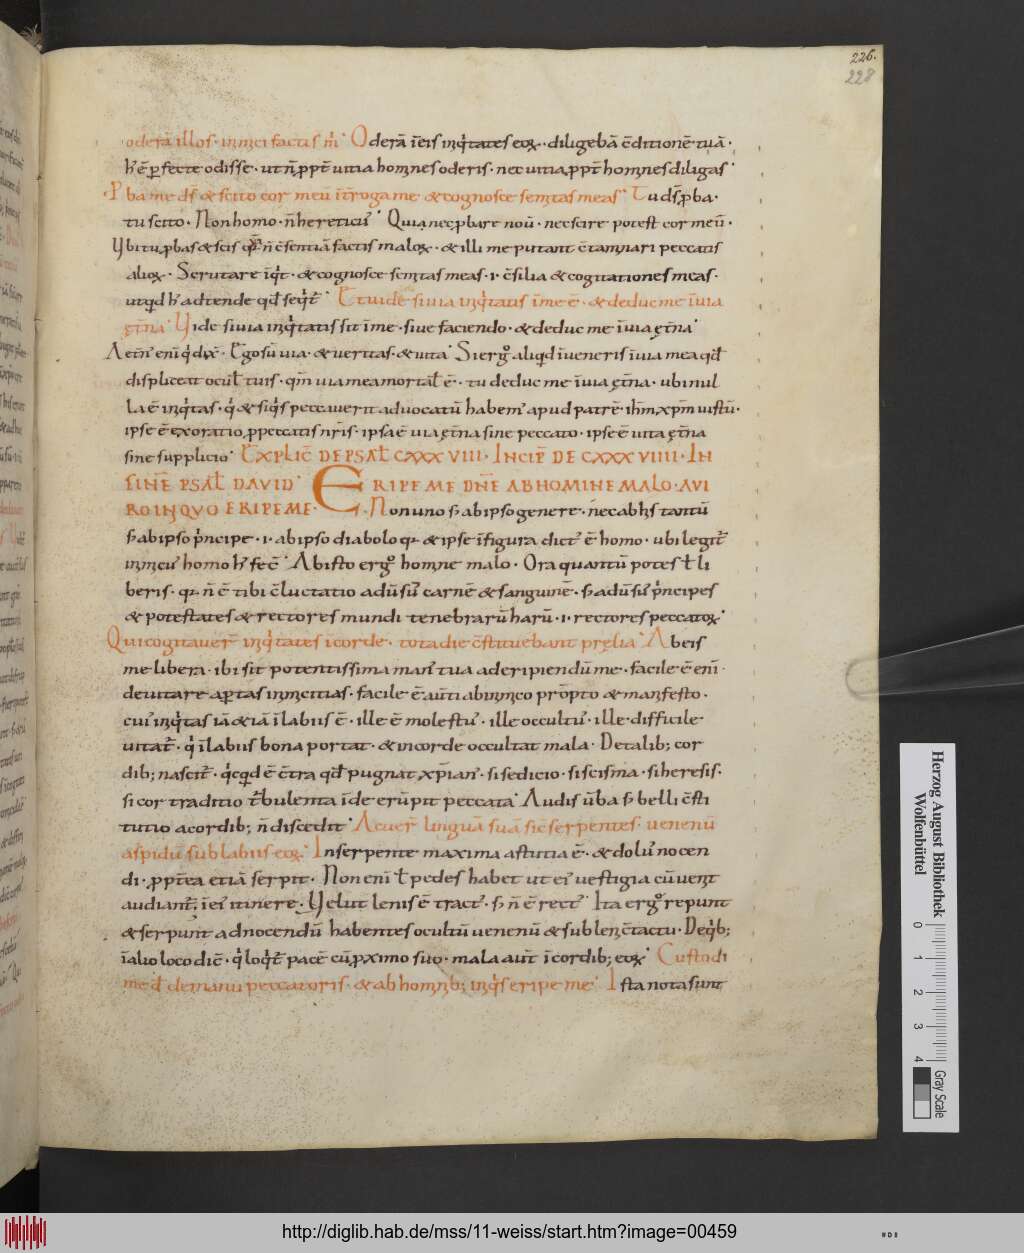 226.
228
oderā illos · inimici facti s̄ m̄ · Oderā ī eis iniq̇tates eoꝝ · diligebā c̄ditionē tuā ·
h̄ ē ꝑfecte odisse · ut n̄ ꝓpt̄ uitia homines oderis · nec uitia ꝓpt̄ homines diligas ·
ꝓba me ds̄ & scito cor meū īt̄roga me & cognosce semitas meas · Tu ds̄ ꝓba ·
tu scito · Non homo · n̄ hereticus · Quia nec ꝓbare noū · nec scire potest cor meū ·
Ubi tu ꝓbas & scis qm̄ n̄ c̄sentiā factis maloꝝ · & illi me putant c̄taminari peccatis
alioꝝ · Scrutare īq̇t · & cognosce semitas meas · ı · c̄silia & cogitationes meas ·
utq̣d h̄ adtende qd̄ seq̇t̄ · Et uide si uia iniq̇tatis ī me ē · & deduc me ī uia
ęt̄na · Vide si uia iniq̇tatis sit ī me · siue faciendo · & deduc me ī uia ęt̄na ·
displiceat ocul̄ tuis · qm̄ uia mea mortal̄ ē · tu deduc me ī uia ęt̄na · ubi nul
la ē iniq̇tas · q̇ & siq̇s peccauerit aduocatū habem' apud patrē · ih̄m xp̄m iustū ·
ipse ē exoratio ꝓ peccatis nr̄is · ipsa ē uia ęt̄na sine peccato · ipse ē uita ęt̄na
sine supplicio · EXPLIC̄ DE PSAL̄ CXXXVIII · INCIP̄ DE CXXXVIIII · IN
FINĒ PSAL̄ DAVID · ERIPE ME DN̄E AB HOMINE MALO · A VI
RO INIQVO ERIPE ME · Non uno s; ab ipso genere · nec ab his tantū
s; ab ipso p̄ncipe · ı · ab ipso diabolo qꝛ & ipse ī figura dict' ē homo · ubi legit̄
inimicus homo h̄ fec̄ · Ab isto ergo homine malo · Ora quantū potes t̄ li
beris · qꝛ n̄ ē tibi c̄luctatio adūsus carnē & sanguinē · s; adūsus p̄ncipes
& potestates & rectores mundi tenebrarū harū · ı · rectores peccatoꝝ ·
Qui cogitauer̄ iniq̇tates ī corde · tota die c̄stituebant pręlia · Ab eis
me libera · ibi sit potentissima man' tua ad eripiendū me · facile ē eni̅ ·
deuitare aꝑtas inimicitias · facile ē aūt̄ ab inimico prōpto & manifesto ·
cuius iniq̇tas iā & iā ī labiis ē · ille ē molestus · ille occultus · ille difficile
uitat̄ · q̇ ī labiis bona portat · & in corde occultat mala · De talib; cor
dib; nascit̄ · q̇cq̣d ē c̄tra qd̄ pugnat xp̄ian' · si sedicio · si scisma · si heresis ·
si cor traditio t̄bulenta īde erūpit peccata · Audis ūba s; belli c̄sti
tutio a cordib; n̄ discedit · Acuer̄ linguā suā sic̄ serpentes · uenenū
aspidū sub labiis eoꝝ · In serpente maxima astutia ē · & dolus nocen
di · ꝓpt̄ea etiā serpit · Non eni̅ t̄ pedes habet ut ei' uestigia cū uenit
audiant̄, ī ei' itinere · Velut lenis ē tract' · s; n̄ ē rect' · Ita ergo repunt
& serpunt ad nocendū habentes ocultū uenenū & sub leni c̄tactu · De q̇b;
ī alio loco dic̄ · q̇ loq̇t̄ pacē cū ꝓximo suo · mala aūt̄ ī cordib; eoꝝ · Custodi
me d̄ de manu peccatoris · & ab hominib; iniq̇s eripe me · Ista nota sunt
Herzog August Bibliothek
Wolfenbüttel
0
1
2
3
4
Gray Scale
http://diglib.hab.de/mss/11-weiss/start.htm?image=00459